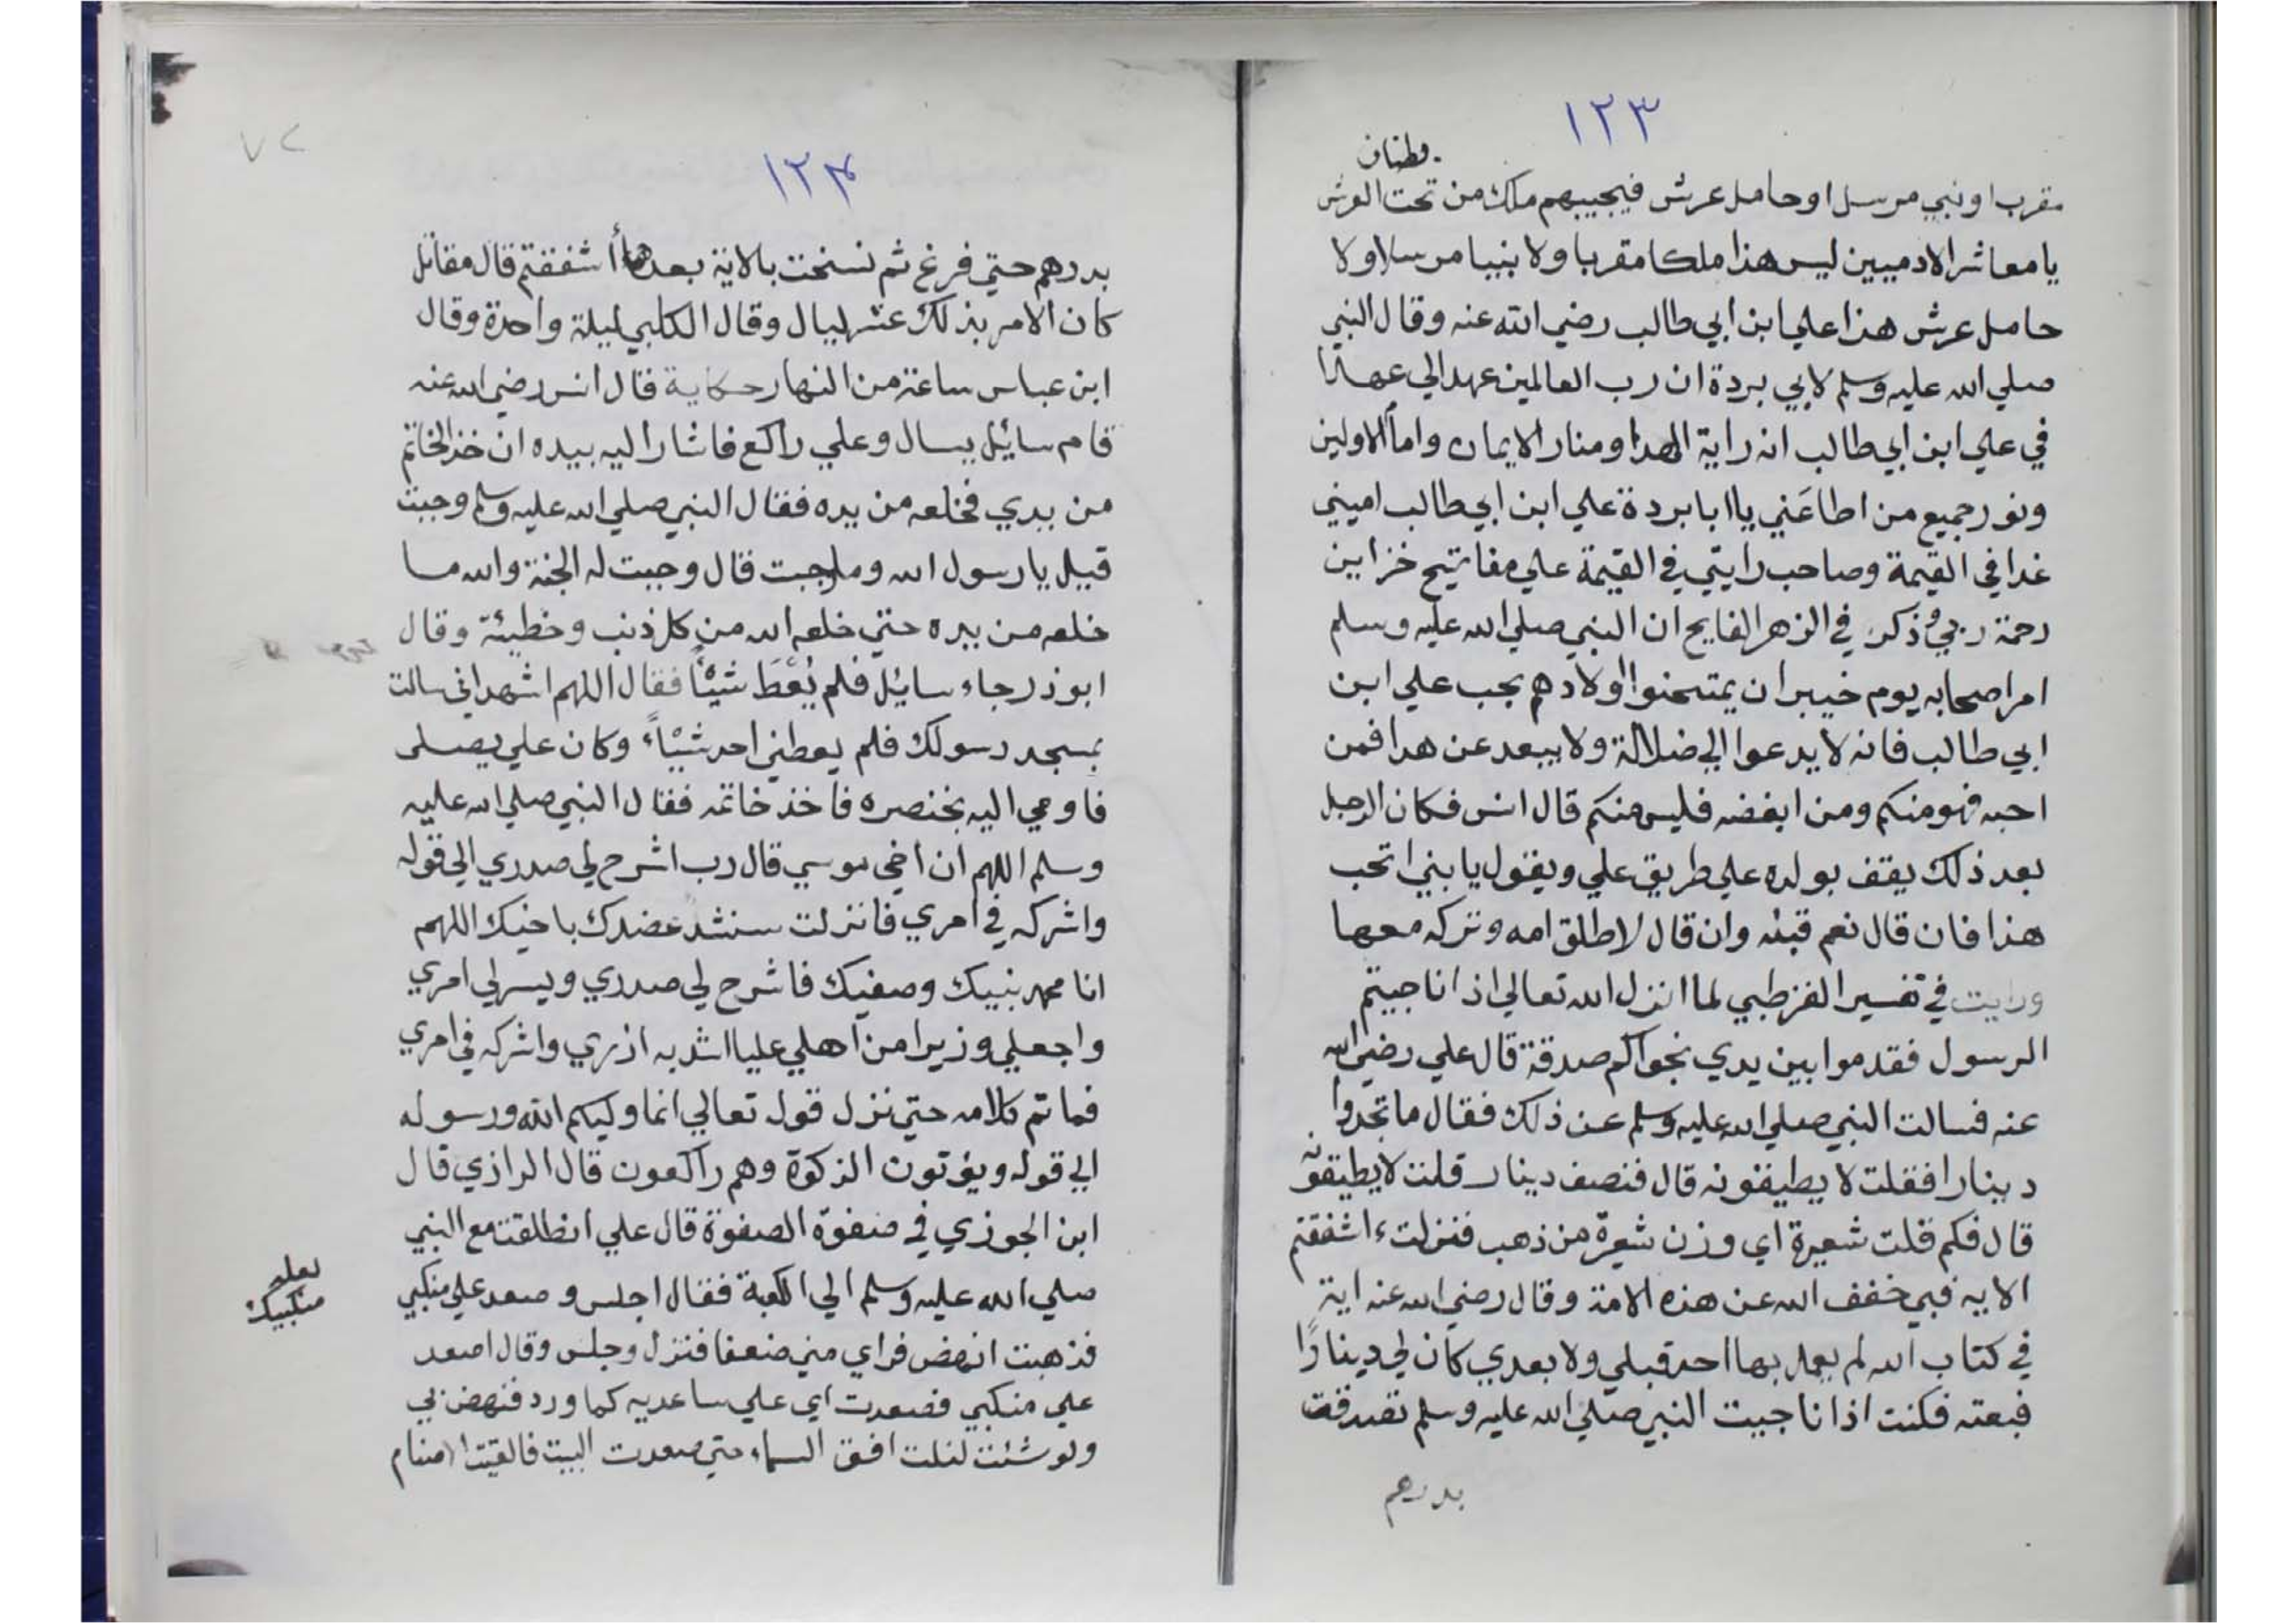 ١٢٣
مقرب او نبي مرسل او حامل عرش فيجيبهم ملك من تحت العرش
يا معاشر الادميين ليس هذا ملكا مقربا ولا بنيا مرسلا ولا
حامل عرش هذا علي ابن ابي طالب رضي الله عنه وقال النبي
صلي الله عليه وسلم لابي بردة ان رب العالمين عهد الي عهدا
في علي ابن ابي طالب انه راية الهدا ومنار الايمان وامام الاولين
ونور جميع من اطاعني يا ابا بردة علي ابن ابي طالب اميني
غدا في القيمة وصاحب رايتي في القيمة علي مفاتيح خزاين
رحمة ربي وذكر في الزهر الفايح ان النبي صلي الله عليه وسلم
امر اصحابه يوم خيبر ان يمتحنوا اولادهم بحب علي ابن
ابي طالب فانه لا يدعوا الي ضلالة ولا يبعد عن هدا فمن
احبه فهو منكم ومن ابغضه فليس منكم قال انس فكان الرجل
بعد ذلك يقف بولده علي طريق علي ويقول يا بني اتحب
هذا فان قال نعم قبله وان قال لا طلق امه وتركه معها
ورايت في تفسير القرطبي لما انزل الله تعالي اذا ناجيتم
الرسول فقدموا بين يدي نجواكم صدقة قال علي رضي الله
عنه فسالت النبي صلي الله عليه وسلم عن ذلك فقال ما تجدوا
دينارا فقلت لا يطيقونه قال فنصف دينار قلت لا يطيقونه
قال فكم قلت شعيرة اي وزن شعيرة من ذهب فنزلت ءاشفقتم
الايه فبي خفف الله عن هذه الامة وقال رضي الله عنه اية
في كتاب الله لم يعمل بها احد قبلي ولا بعدي كان لي دينارًا
فبعته فكنت اذا ناجيت النبي صلي الله عليه وسلم تصدقت
بدرهم
١٢٤
٧٢
بدرهم حتي فرغ ثم نسخت بالاية بعدها أشفقتم قال مقاتل
كان الامر بذلك عشر ليال وقال الكلبي ليلة واحدة وقال
ابن عباس ساعة من النهار حكاية قال انس رضي الله عنه
قام سائيل يسال وعلي راكع فاشار اليه بيده ان خذ الخاتم
من يدي فخلعه من يده فقال النبي صلي الله عليه وسلم وجبت
قيل يا رسول الله وما وجبت قال وجبت له الجنة والله ما
خلعه من يده حتي خلعه الله من كل ذنب وخطيئة وقال
ابوذر جاء سايئل فلم يُعْطَ شيئًا فقال اللهم اشهد اني سالت
بمسجد رسولك فلم يعطني احد شيئاً وكان علي يصلى
فاومي اليه بخنصره فاخذ خاتمه فقال النبي صلي الله عليه
وسلم اللهم ان اخي موسي قال رب اشرح لي صدري الي قوله
واشركه في امري فانزلت سنشد عضدك باخيك اللهم
انا محمد نبيك وصفيك فاشرح لي صدري ويسر لي امري
واجعل لي وزيرا من اهلي عليا اشدد به ازري واشركه في امري
فما تم كلامه حتي نزل قول تعالي انما وليكم الله ورسوله
الي قوله ويؤتون الزكوة وهم راكعون قال الرازي قال
ابن الجوزي في صفوة الصفوة قال علي انطلقت مع النبي
صلي الله عليه وسلم الي الكعبة فقال اجلس وصعد علي منكبي
لعله
منكبيك
فذهبت انهض فراي مني ضعفا فنزل وجلس وقال اصعد
علي منكبي فصعدت اي علي ساعديه كما ورد فنهض بي
ولو شئت لنلت افق السماء حتي صعدت البيت فالقيت الاصنام